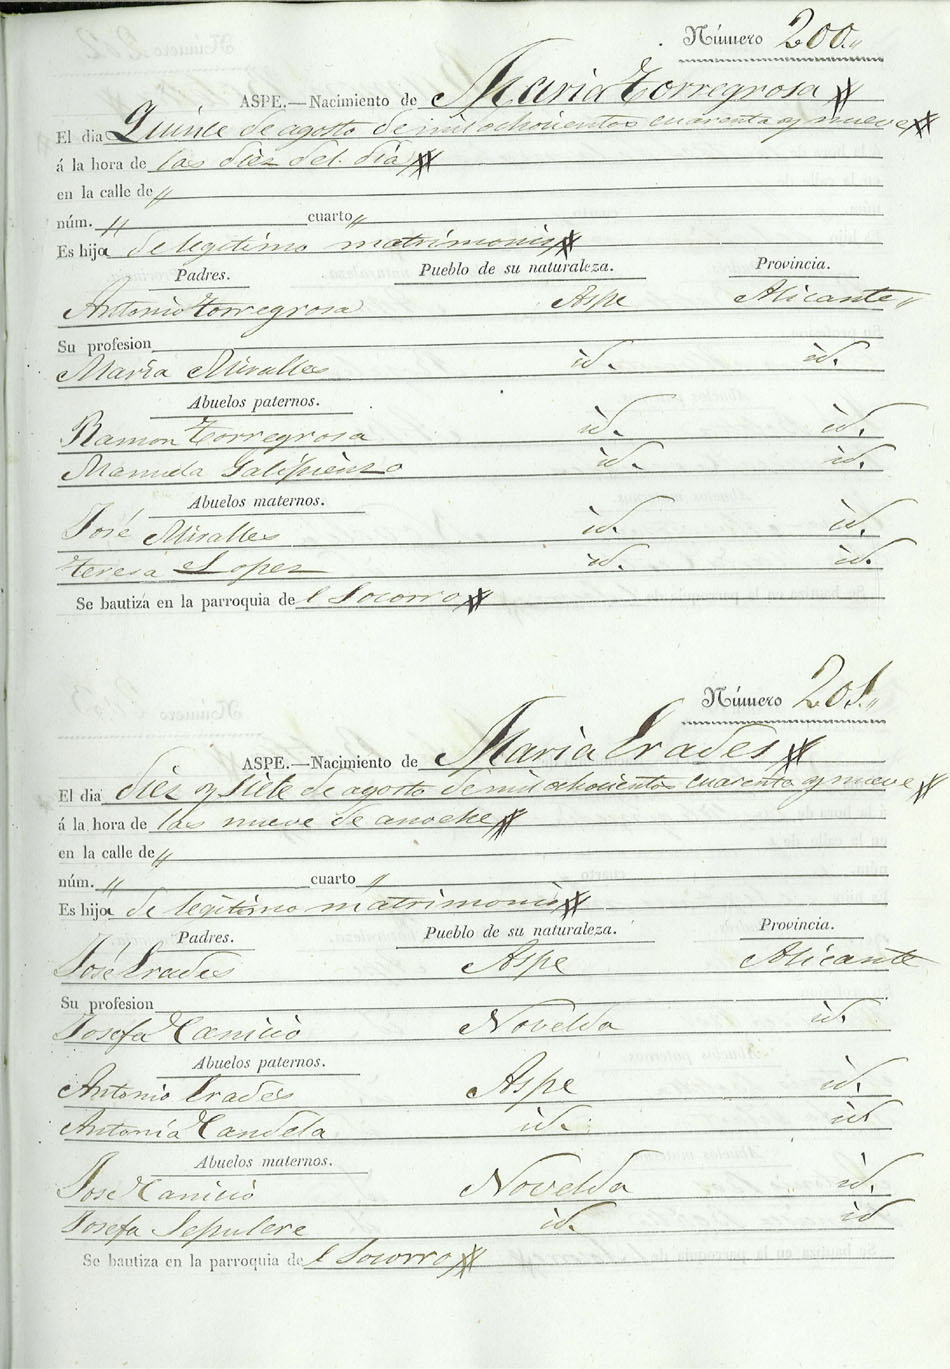 Número 200 „
ASPE.—Nacimiento de Maria Torregrosa
El dia Quince de agosto de mil ochocientos cuarenta y nueve
á la hora de las diez del dia
en la calle de „
núm. „ cuarto „
Es hija de legitimo matrimonio
Padres. Pueblo de su naturaleza. Provincia.
Antonio Torregrosa Aspe Alicante „
Su profesion
Maria Miralles id. id.
Abuelos paternos.
Ramon Torregrosa id. id.
Manuela Galipienso id. id.
Abuelos maternos.
José Miralles id. id.
Teresa Lopez id. id.
Se bautiza en la parroquia del Socorro
Número 201 „
ASPE.—Nacimiento de Maria Erades
El dia diez y siete de agosto de mil ochocientos cuarenta y nueve
á la hora de las nueve de anoche
en la calle de „
núm. „ cuarto „
Es hija de legitimo matrimonio
Padres. Pueblo de su naturaleza. Provincia.
José Erades Aspe Alicante
Su profesion
Josefa Canicio Novelda id.
Abuelos paternos.
Antonio Erades Aspe id.
Antonia Candela id. id
Abuelos maternos.
José Canicio Novelda id.
Josefa Sepulcre id. id
Se bautiza en la parroquia del Socorro